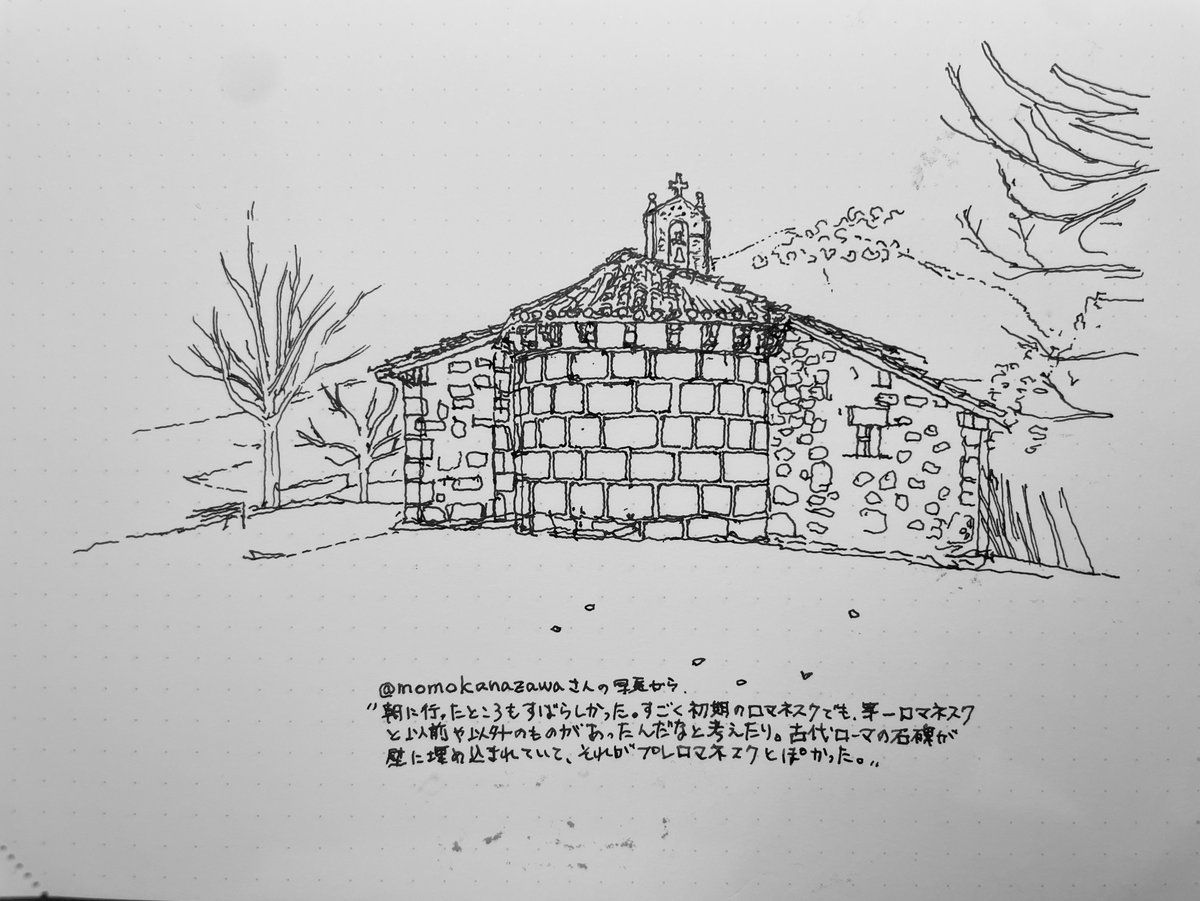 @momokanazawaさんの写真から.
"朝に行ったところもすばらしかった。すごく初期のロマネスクでも、第一ロマネスク
と以前や以外のものがあったんだなと考えたり。古代ローマの石碑が
壁に埋め込まれていて、それがプレロマネスクとぽかった。"